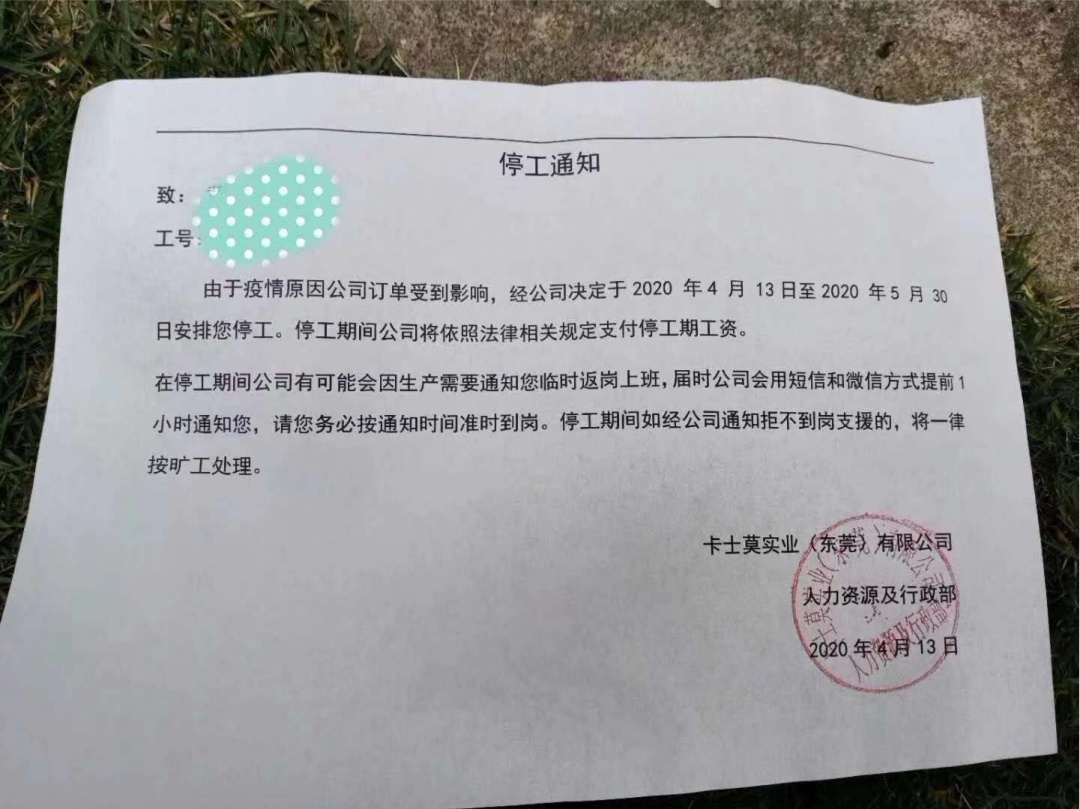 停工通知
致：
工号：
由于疫情原因公司订单受到影响，经公司决定于 2020 年 4 月 13 日至 2020 年 5 月 30
日安排您停工。停工期间公司将依照法律相关规定支付停工期工资。
在停工期间公司有可能会因生产需要通知您临时返岗上班，届时公司会用短信和微信方式提前 1
小时通知您，请您务必按通知时间准时到岗。停工期间如经公司通知拒不到岗支援的，将一律
按旷工处理。
卡士莫实业（东莞）有限公司
人力资源及行政部
2020 年 4 月 13 日
士莫实业（东莞）有限公司
人力资源及行政部